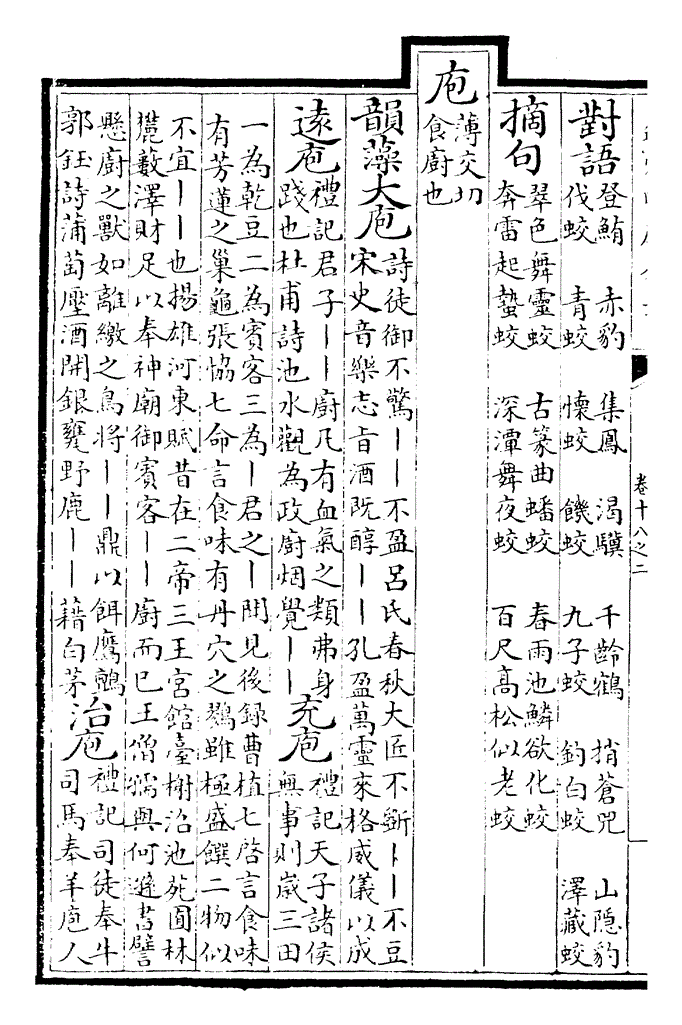 卷十八之二
對語
登鮪 赤豹 集鳳 渴驥 千齡鶴 捎蒼兕 山隠豹
伐蛟 青蛟 懐蛟 饑蛟 九子蛟 釣白蛟 澤藏蛟
摘句
翠色舞靈蛟 古篆曲蟠蛟 春雨池鱗欲化蛟
奔雷起蟄蛟 深潭舞夜蛟 百尺髙松似老蛟
庖
薄交切
食廚也
韻藻大庖
詩徒御不驚丨丨不盈吕氏春秋大匠不斵丨丨不豆
宋史音樂志㫖酒既醇丨丨孔盈萬靈來格威儀以成
逺庖
禮記君子丨丨廚凡有血氣之類弗身
踐也杜甫詩池水觀為政廚烟覺丨丨
充庖
禮記天子諸侯
無事則歳三田
一為乾豆二為賓客三為丨君之丨聞見後録曹植七啓言食味
有芳蓮之巢龜張協七命言食味有丹穴之鷚雖極盛饌二物似
不宜丨丨也揚雄河東賦昔在二帝三王宮館臺榭沼池苑囿林
麓藪澤財足以奉神廟御賓客丨丨廚而已王僧孺與何遜書譬
懸廚之獸如離繳之鳥將丨丨鼎以餌鷹鸇
郭鈺詩蒲萄壓酒開銀甕野鹿丨丨藉白茅
治庖
禮記司徒奉牛
司馬奉羊庖人